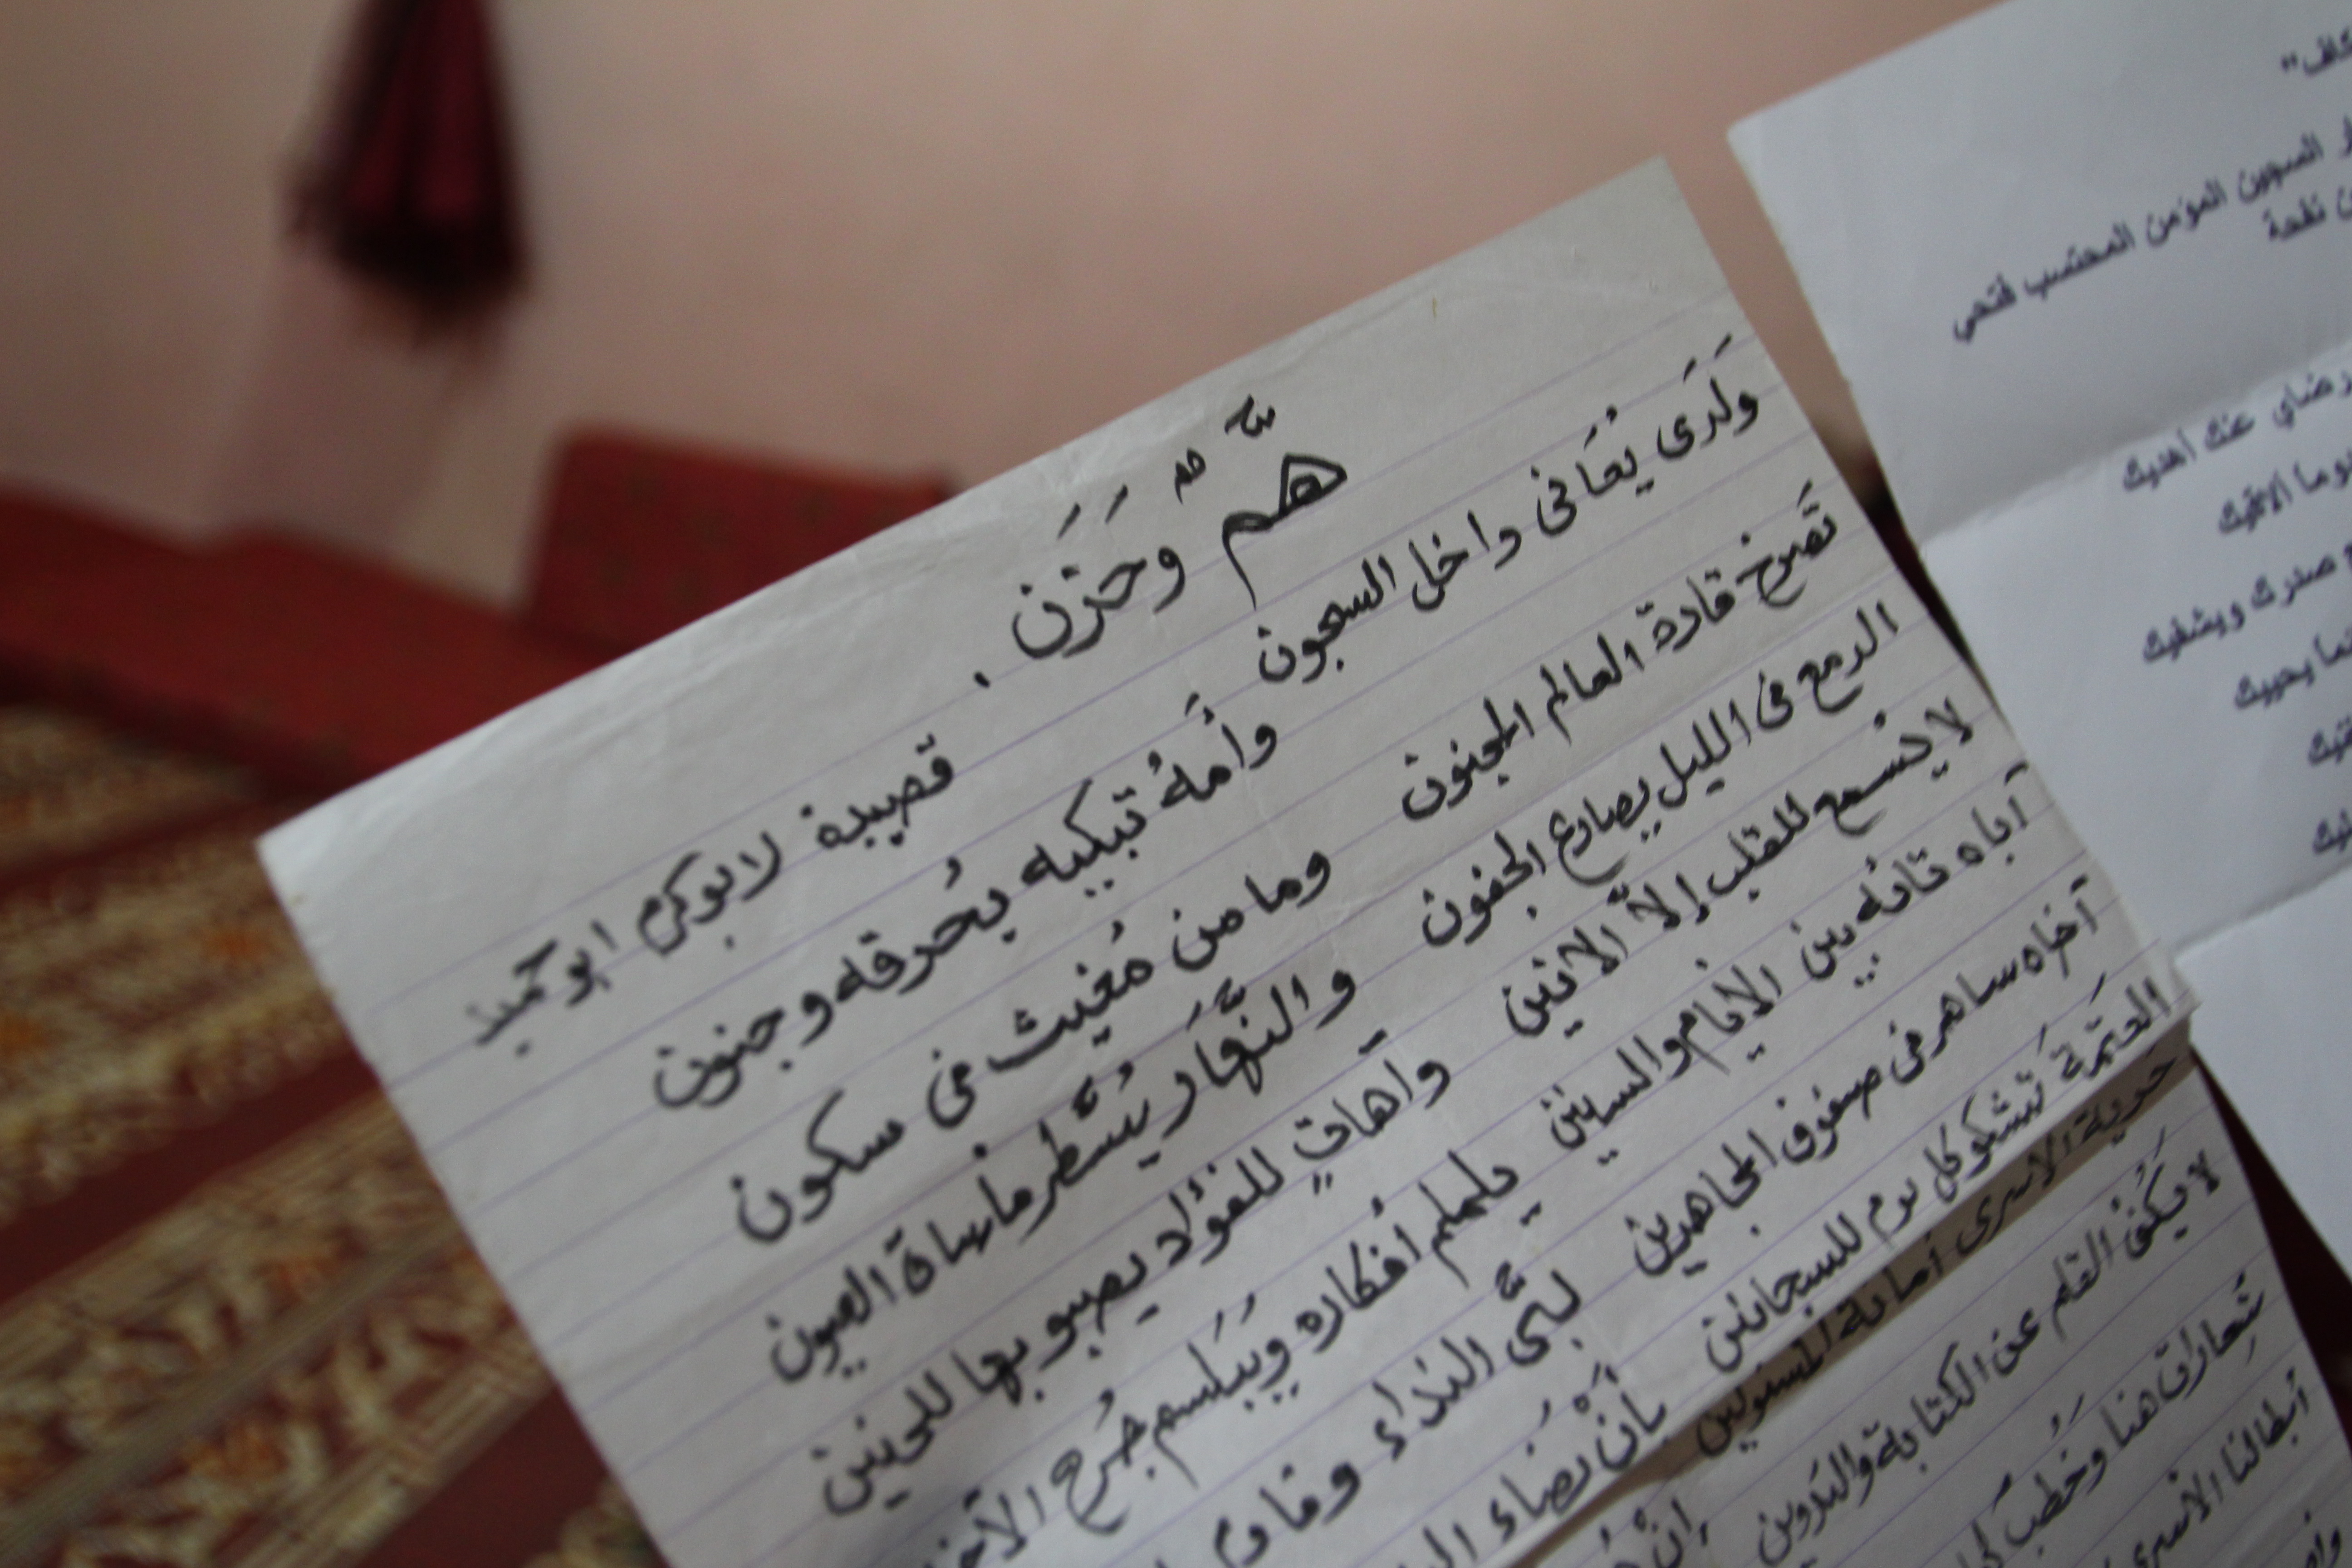 هَمٌّ وَحَزَن .
قصيدة لابوكرم ابو حميد
وَلَدَى يُعَانى داخل السجون وأمهُ تبكيه بحُرقه وجنون
تَصرخ قادة العالم المجنون وما من مُغيث فى سكون
الدمع فى الليل يصارع الجفون والنَّهار يُسَّطر مأساة العيون
لا يُسمع للقلب إلاّ الانين واهاتٍ للفؤاد يصبو بها للحنين
آباه تائه بين الايام والسنين يلملم أفكاره ويُبَلسم جُرح
آخاه ساهر فى صفوف المجاهدين لبَّى النداء
العتمَة تشكو كل يوم للسجانين بأنْ يضاء
حرية الأسرى أمانة المسئولين
لا يَكُف القلم عن الكتابة والتدوين
شِعارات هنا وخُطَب
أبطالنا الأسرى
السجين المؤمن المحتسب فتحي
عنك أهديك
صدرك ويشفيك